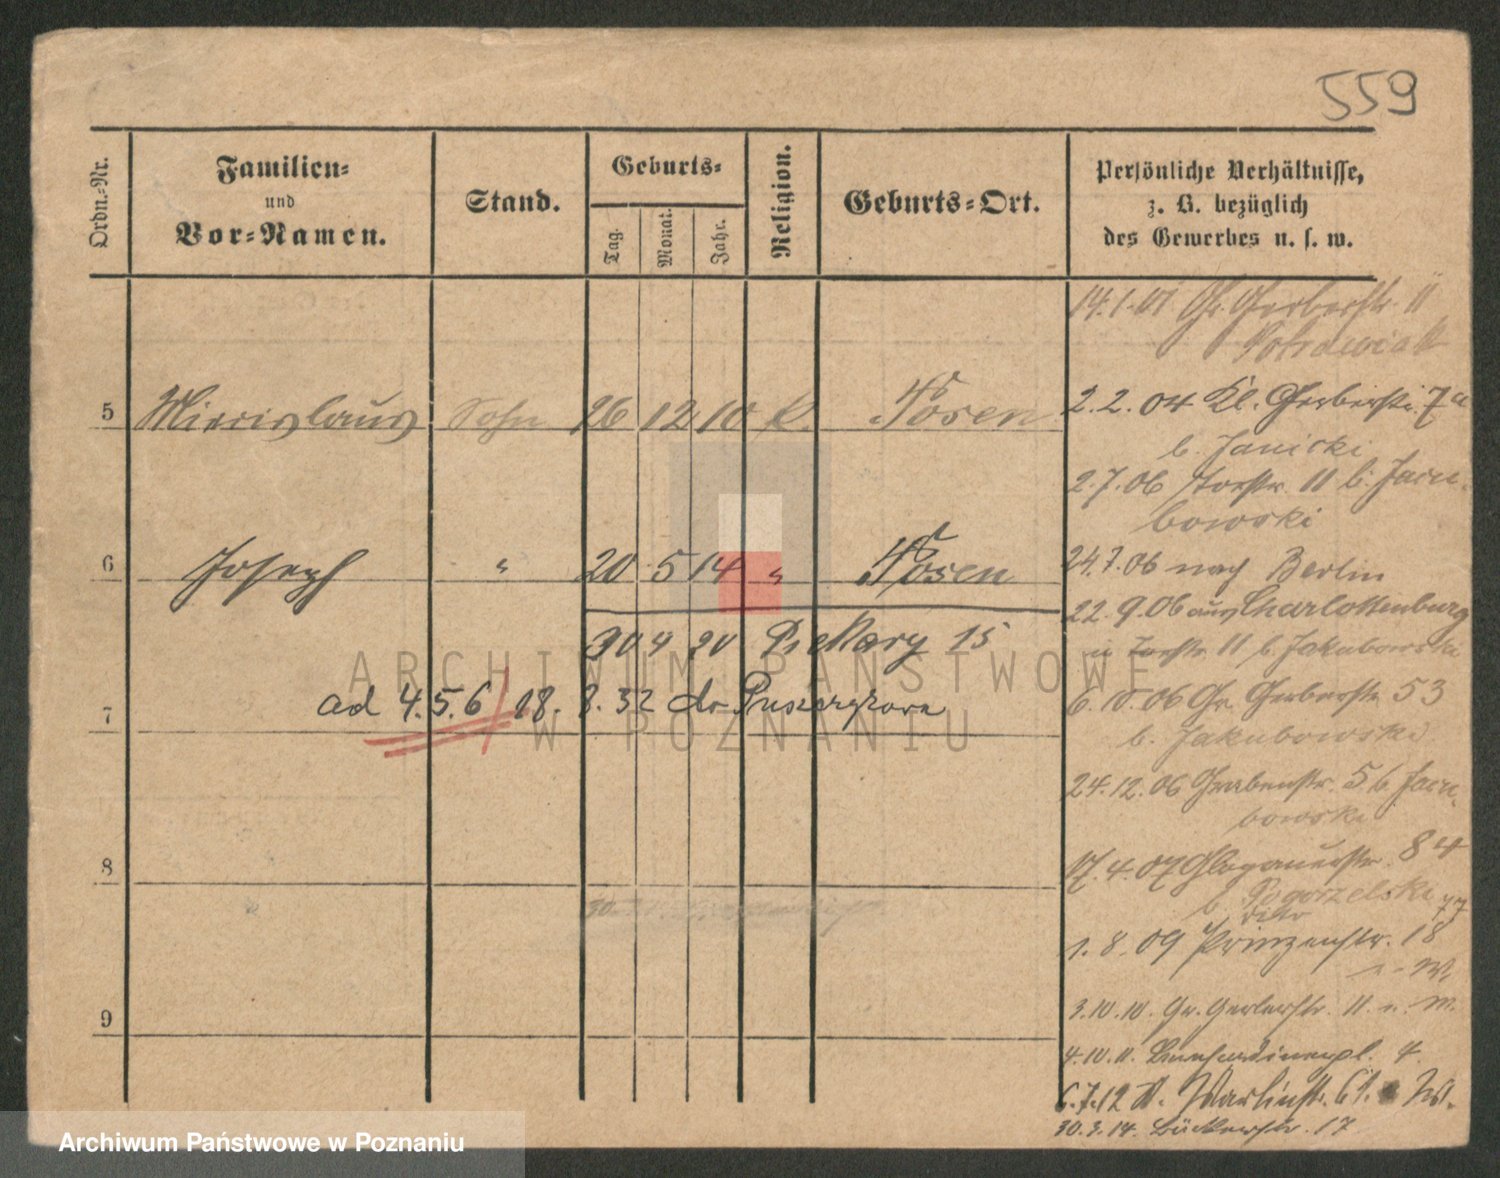 559
Ordn.-Nr.
Familien-
und
Vor-Namen.
Stand.
Geburts-
Tag.
Monat.
Jahr.
Religion.
Geburts-Ort.
Persönliche Verhältnisse,
z. B. bezüglich
des Gewerbes u. s. w.
14.1.01 Gr. Gerberstr. 11
5 Miecislaus Sohn 26 12 10 k. Posen
2.2.04 Kl. Gerberstr. 7a
b. Janicki
2.7.06 11 b. Jacu-
bowski
6 Joseph " 20 5 14 " Posen
24.7.06 nach Berlin
22.9.06 aus Charlottenburg
11 b. Jakubowski
30 4 20 Piekary 15
6.10.06 Gr. Gerberstr. 53
b. Jakubowski
7 ad 4.5.6 18. 8. 32 do Puszczykowa
24.12.06 Grabenstr. 5 b. Jacu-
bowski
8
17.4.07 Glogauerstr. 84
b. Pogorzelski
dito 77
1.8.09 Prinzenstr. 18
9
3.10.10. Gr. Gerberstr. 11
4.10.11. Bernhardinerpl. 4
6.7.12
30.3.14. Bäckerstr. 17
ARCHIWUM PAŃSTWOWE
W POZNANIU
Archiwum Państwowe w Poznaniu